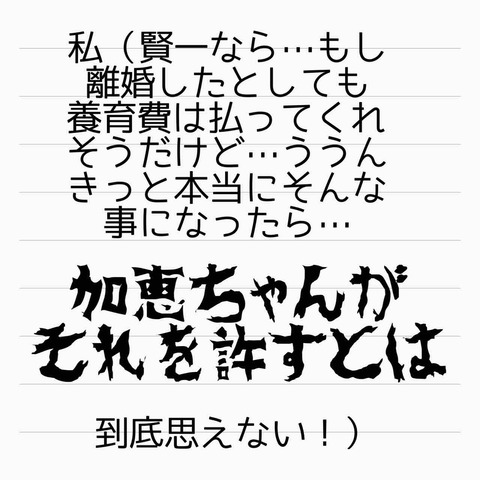 私（賢一なら…もし
離婚したとしても
養育費は払ってくれ
そうだけど…ううん
きっと本当にそんな
事になったら…
加恵ちゃんが
それを許すとは
到底思えない！）